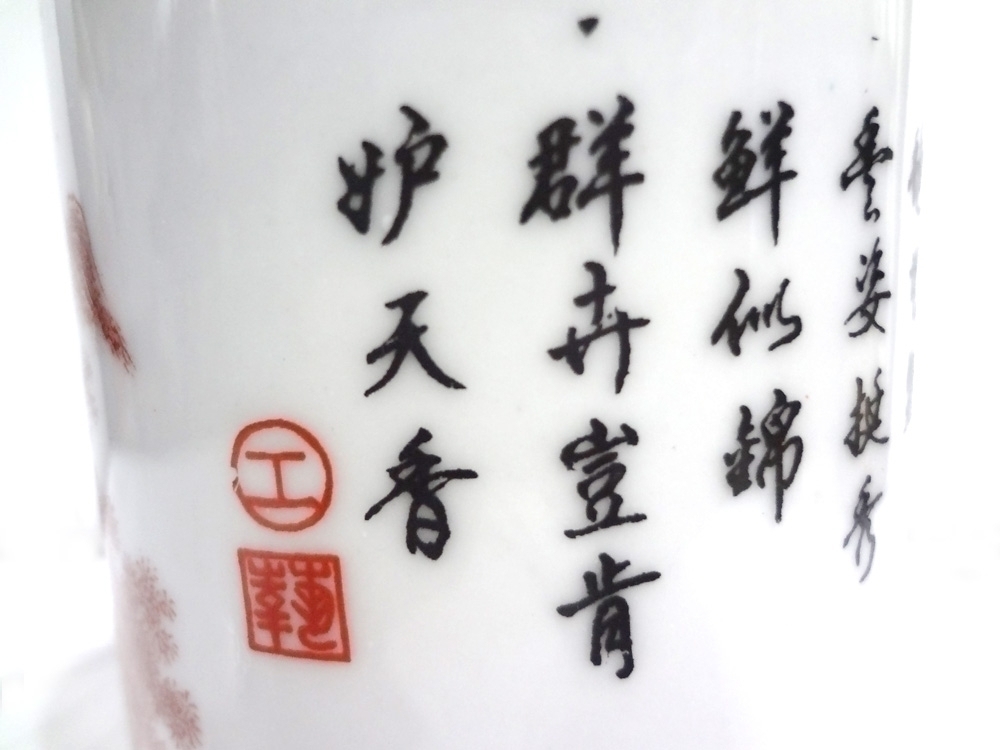 姿挺秀
鲜似錦
群卉豈肯
妒天香
工